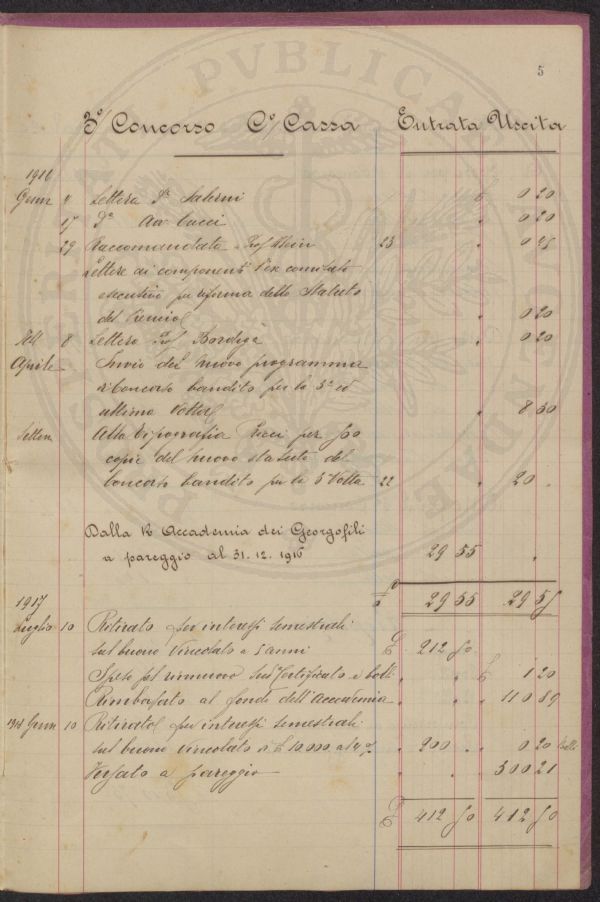 5
3º Concorso Cº/ Cassa Entrata Uscita
1916
Genn 4 Lettera Dr Salerni £ 0 20
" 17 Dº Avv Cucci " 0 20
" 29 Raccomandata Prof Klein 23 " 0 45
Lettere ai component' l'ex comitato
esecutivo per riforma dello Statuto
del Premio " 0 20
8 Lettera Prof Bordiga " 0 20
Aprile Invio del nuovo programma
concorso bandito per la 3ª ed
ultima volta " 8 30
Settem Alla Tipografia Ricci per 500
copie del nuovo statuto del
Concorso bandito per la 3ª Volta 22 " 20 "
Dalla R Accademia dei Georgofili
a pareggio al 31. 12. 1916 29 55 "
29 55 29 55
1917
Luglio 10 Ritirato per interessi semestrali
sul buono vincolato a 5 anni £ 212 50
Spese pel rinnuovo sul Certificato e boll. " " £ 1 20
Rimborsato al fondo dell'Accademia " " 110 89
1918 Genn 10 Ritirato per interessi semestrali
sul buono vincolato di £ 10 000 al 4% " 200 " " 0 20 bolli
Versato a pareggio " " 300 21
£ 412 50 412 50